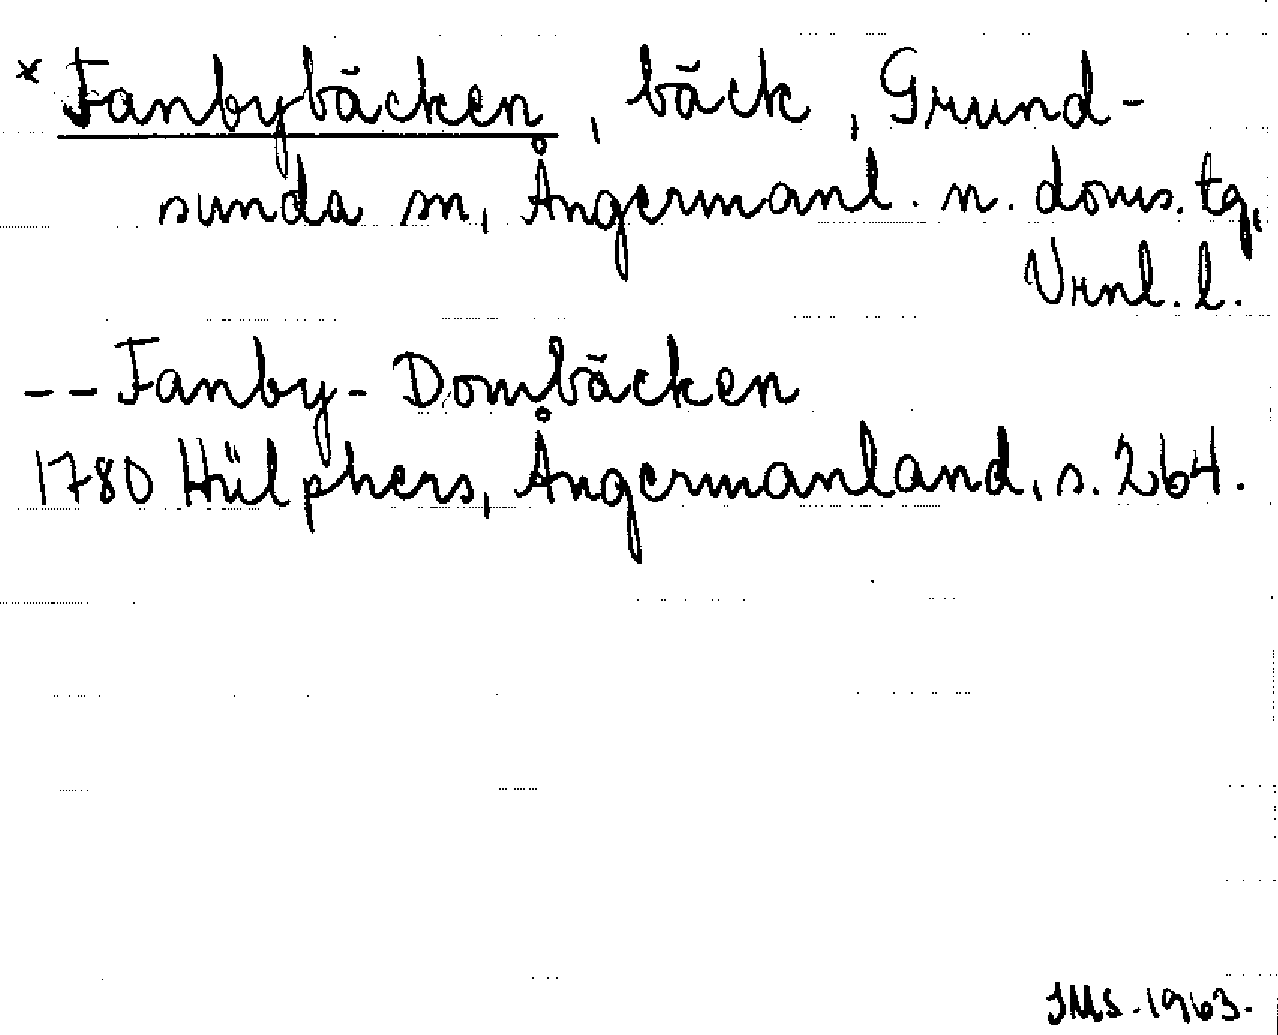 * Fanbybäcken, bäck, Grund-
sunda sn, Ångermanl. n. doms. tg,
Vrnl. l.
-- Fanby- Dombäcken
1780 Hülphers, Ångermanland, s. 264.
JMS. 1963.